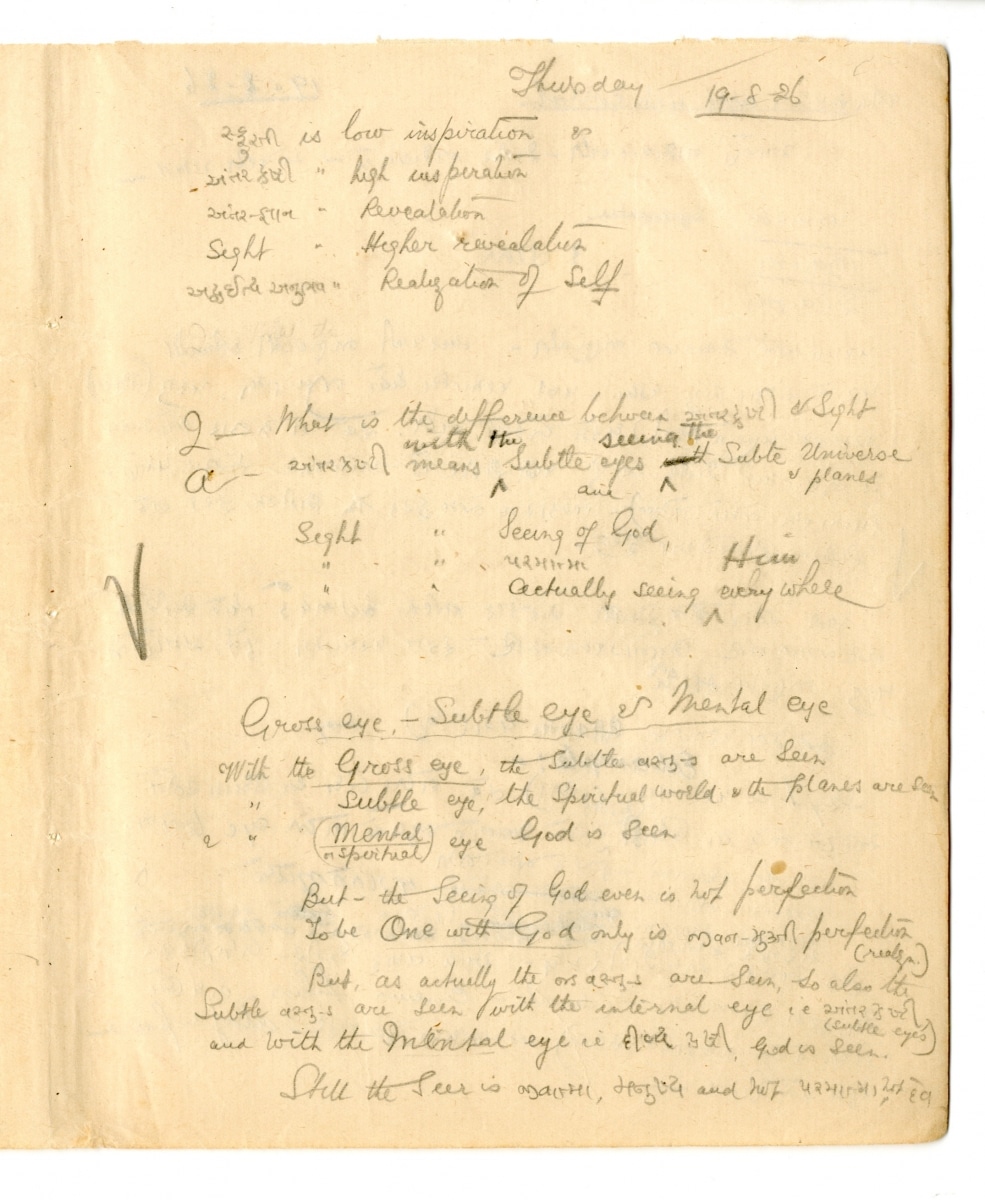 Thursday 19-8-26
સ્ફુરતી is low inspiration &
અંતર દ્રષ્ટી " high inspiration
અંતર-જ્ઞાન " Revealation
Sight " Higher revealation
અનુભવ " Realization of Self
Q — What is the difference between અંતર દ્રષ્ટી & Sight
with the seeing the
a — અંતર દ્રષ્ટી means Subtle eyes Subtle Universe
& planes
Sight " Seeing of God,
" " પરમાત્મા Him
" " actually seeing everywhere
Gross eye, - Subtle eye & Mental eye
With the Gross eye, the Subtle વસ્તુ-s are seen
" Subtle eye, the Spiritual world & the planes are seen
& " (Mental or spiritual) eye God is seen
But - the Seeing of God even is not perfection
To be One with God only is જીવન-મુક્તી-perfection
(realzn.)
But, as actually the જડ વસ્તુ-s are seen, so also the
Subtle વસ્તુ-s are seen with the internal eye ie અંતર દ્રષ્ટી
(subtle eyes)
and with the Mental eye ie દીવ્ય દ્રષ્ટી, God is seen.
Still the Seer is જીવાત્મા, મનુષ્ય and not પરમાત્મા, not દેવ